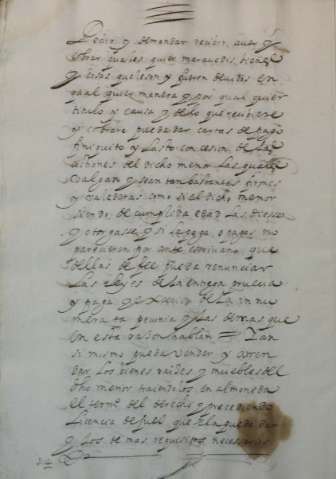 Pedir y demandar recivir, aver y
cobrar quales quier maravedis, bienes
y cosas que le son y fueren devidas en
qual quier manera y por qual quier
titulo y causa y delo que reciviere
y cobrare pueda dar cartas de pago
finiquito y lasto con cesion de las
acciones del dicho menor las quales
valgan y sean tan bastantes firmes
y valederas como si el dicho menor
siendo de cumplida edad las diesse
y otorgasse y si la paga o pagas no
parecieren por ante escrivano que
dellas de fee pueda renunciar
las leyes de la entrega prueva
y paga y excepcion de la non nu
merata pecunia y las demas que
en esta racon hablan = Y an
si mismo pueda vender y arren
dar los bienes raices y muebles del
dho menor haciendolo en almoneda
el termº del derecho y precediendo
licencia de juez que se la pueda dar
y los demas requisitos necessarios